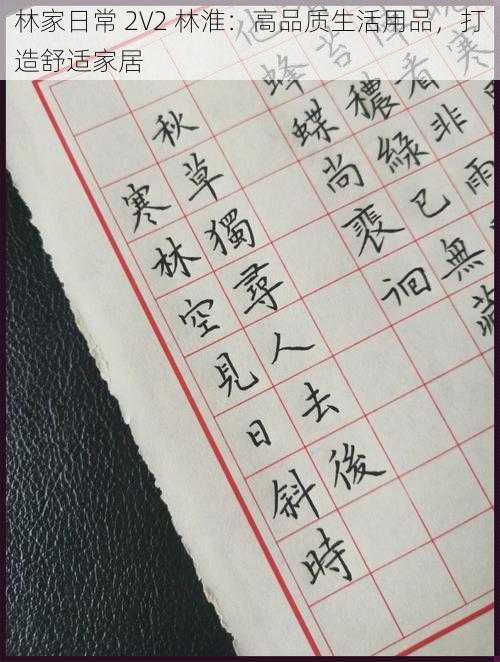 林家日常 2V2 林淮：高品质生活用品，打
造舒适家居
寒
看非雨
苔穠綠已無
蜂蝶尚裵洄
秋草獨尋人去後
寒林空見日斜時